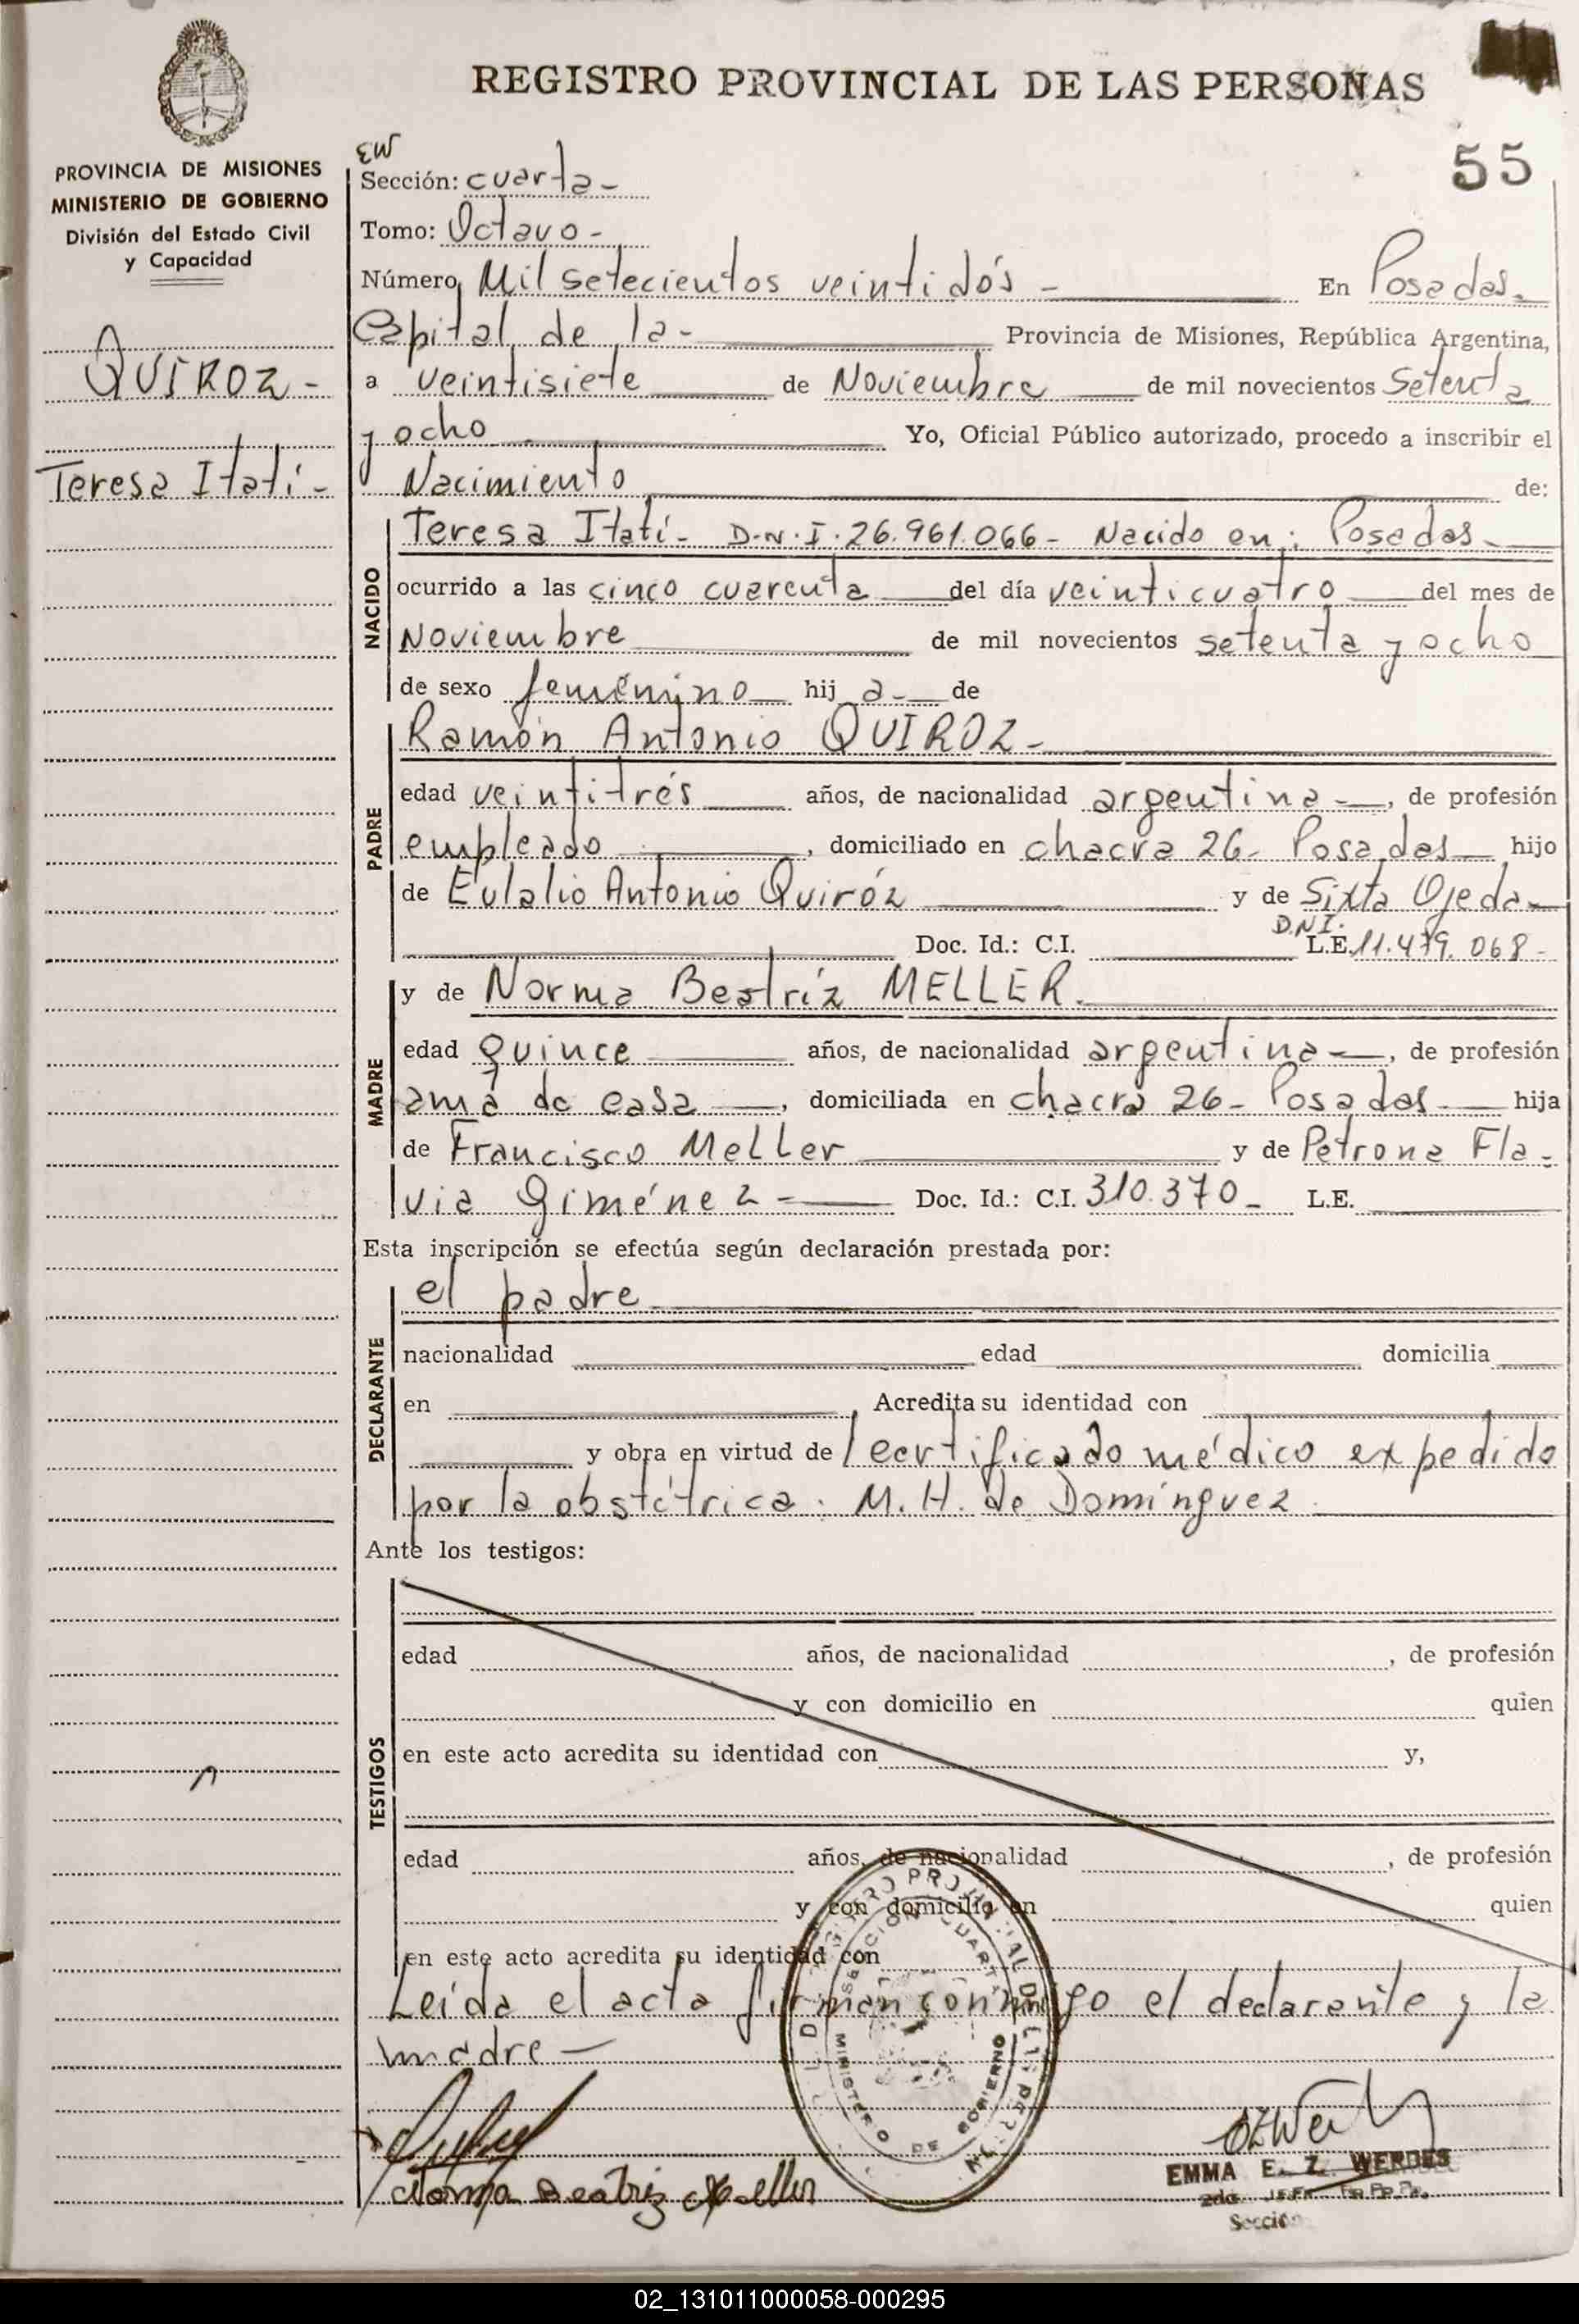 REGISTRO PROVINCIAL DE LAS PERSONAS
55
PROVINCIA DE MISIONES
MINISTERIO DE GOBIERNO
División del Estado Civil
y Capacidad
QUIROZ -
Teresa Itatí -
EW
Sección: cuarta -
Tomo: Octavo -
Número Mil setecientos veintidós - En Posadas -
Capital de la - Provincia de Misiones, República Argentina,
a veintisiete de Noviembre de mil novecientos Setenta
y ocho Yo, Oficial Público autorizado, procedo a inscribir el
Nacimiento de:
NACIDO
Teresa Itatí - D.N.I. 26.961.066 - Nacido en: Posadas -
ocurrido a las cinco cuarenta del día veinticuatro del mes de
Noviembre de mil novecientos setenta y ocho
de sexo femenino hij a - de
PADRE
Ramón Antonio QUIROZ -
edad veintitrés años, de nacionalidad argentina -, de profesión
empleado, domiciliado en chacra 26 - Posadas hijo
de Eulalio Antonio Quiróz y de Sixta Ojeda -
Doc. Id.: C.I. D.N.I. L.E. 11.479.068 -
MADRE
y de Norma Beatríz MELLER.
edad Quince años, de nacionalidad argentina -, de profesión
ama de casa, domiciliada en chacra 26 - Posadas - hija
de Francisco Meller y de Petrona Fla -
via Giménez - Doc. Id.: C.I. 310.370 - L.E.
Esta inscripción se efectúa según declaración prestada por:
DECLARANTE
el padre
nacionalidad edad domicilia
en Acredita su identidad con
y obra en virtud de certificado médico expedido
por la obstétrica: M. H. de Domínguez.
Ante los testigos:
TESTIGOS
edad años, de nacionalidad , de profesión
y con domicilio en quien
en este acto acredita su identidad con y,
edad años, de nacionalidad , de profesión
y con domicilio en quien
en este acto acredita su identidad con
Leída el acta firman conmigo el declarante y la
madre -
SECCION CUARTA
MINISTERIO DE GOBIERNO
Norma Beatriz Meller
EMMA E. Z. WERDES
Sección
02_131011000058-000295